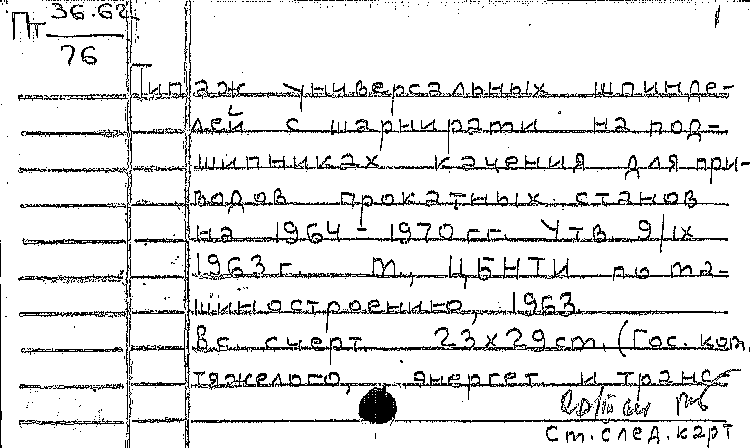 Пт 36.62
76
1
Типаж универсальных шпинде-
лей с шарнирами на под-
шипниках качения для при-
водов прокатных станов
на 1964-1970 гг. Утв. 9/IX
1963 г. М., ЦБНТИ по ма-
шиностроению, 1963.
8 с. с черт. 23x29 см. (Гос. ком.
тяжелого, энергет. и транс-
См. след. карт